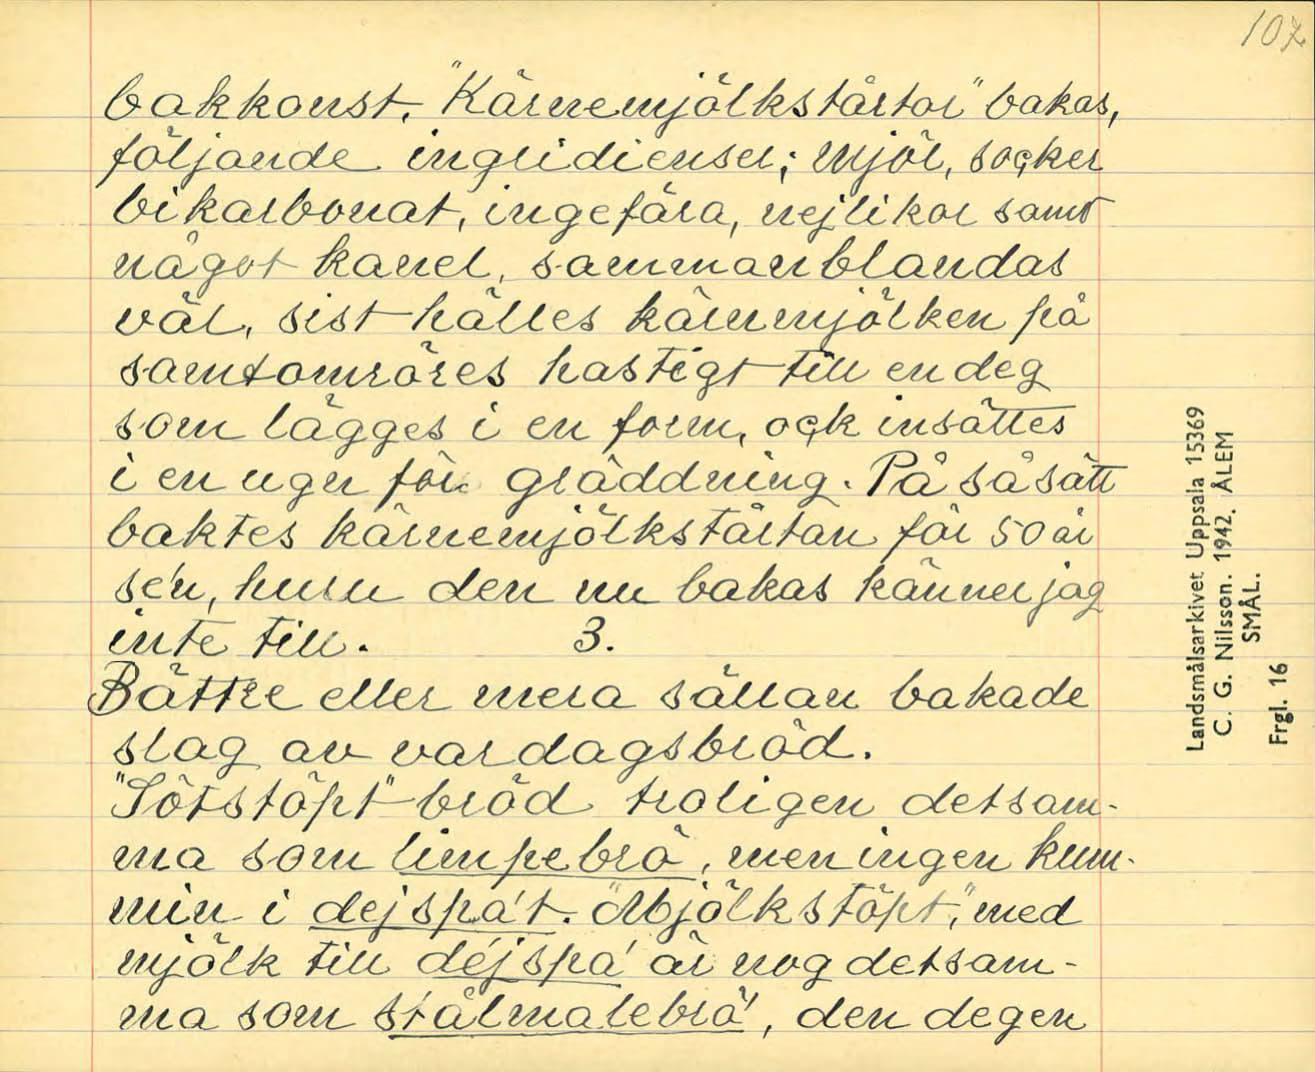 107.
bakkonst. "Kärnemjölkstårtor" bakas,
följande ingridienser; Mjöl, socker
bikarbonat, ingefära, nejlikor samt
något kanel, sammanblandas
väl, sist hälles kärnmjölken på
samt omröres hastigt till en deg
som lägges i en form, ock insättes
i en ugn för gräddning. På så sätt
baktes kärnemjölkstårtan för 50 år
se'n, huru den nu bakas känner jag
inte till. 3.
Bättre eller mera sällan bakade
slag av vardagsbröd.
"Sötstöpt" bröd troligen detsam-
ma som limpebrö, men ingen kum-
min i dejspa't. "Mjölkstöpt," med
mjölk till dejspa' är nog detsam-
ma som stålmalebrö', den degen
Landsmålsarkivet Uppsala 15369
C. G. Nilsson. 1942. ÅLEM
SMÅL.
Frgl. 16